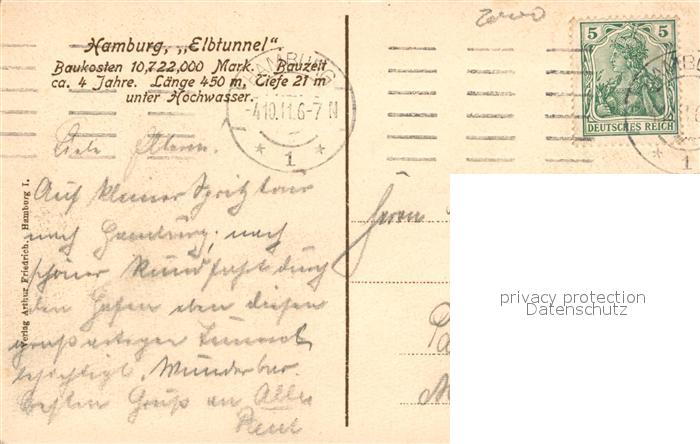 Hamburg, „Elbtunnel".
Baukosten 10,722,000 Mark. Bauzeit
ca. 4 Jahre. Länge 450 m. Tiefe 21 m
unter Hochwasser.
HAMBURG
-4.10.11.6-7 N
* 1 *
5 5
DEUTSCHES REICH
* 1
Verlag Arthur Friedrich., Hamburg I.
Liebe Eltern!
Auf kleiner Spritztour
nach Hamburg, nach
schöner Rundfahrt durch
den Hafen eben diesen
großartigen Tunnel
besichtigt. Wunderbar.
Besten Gruß an Alle
Herrn
privacy protection
Datenschutz